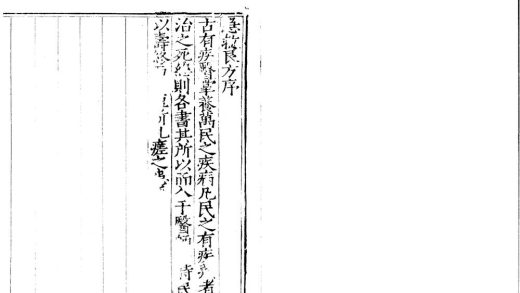 急救良方序
古有疾醫掌養萬民之疾病凡民之有疾者
治之死終則各書其所以而入于醫師
以壽終